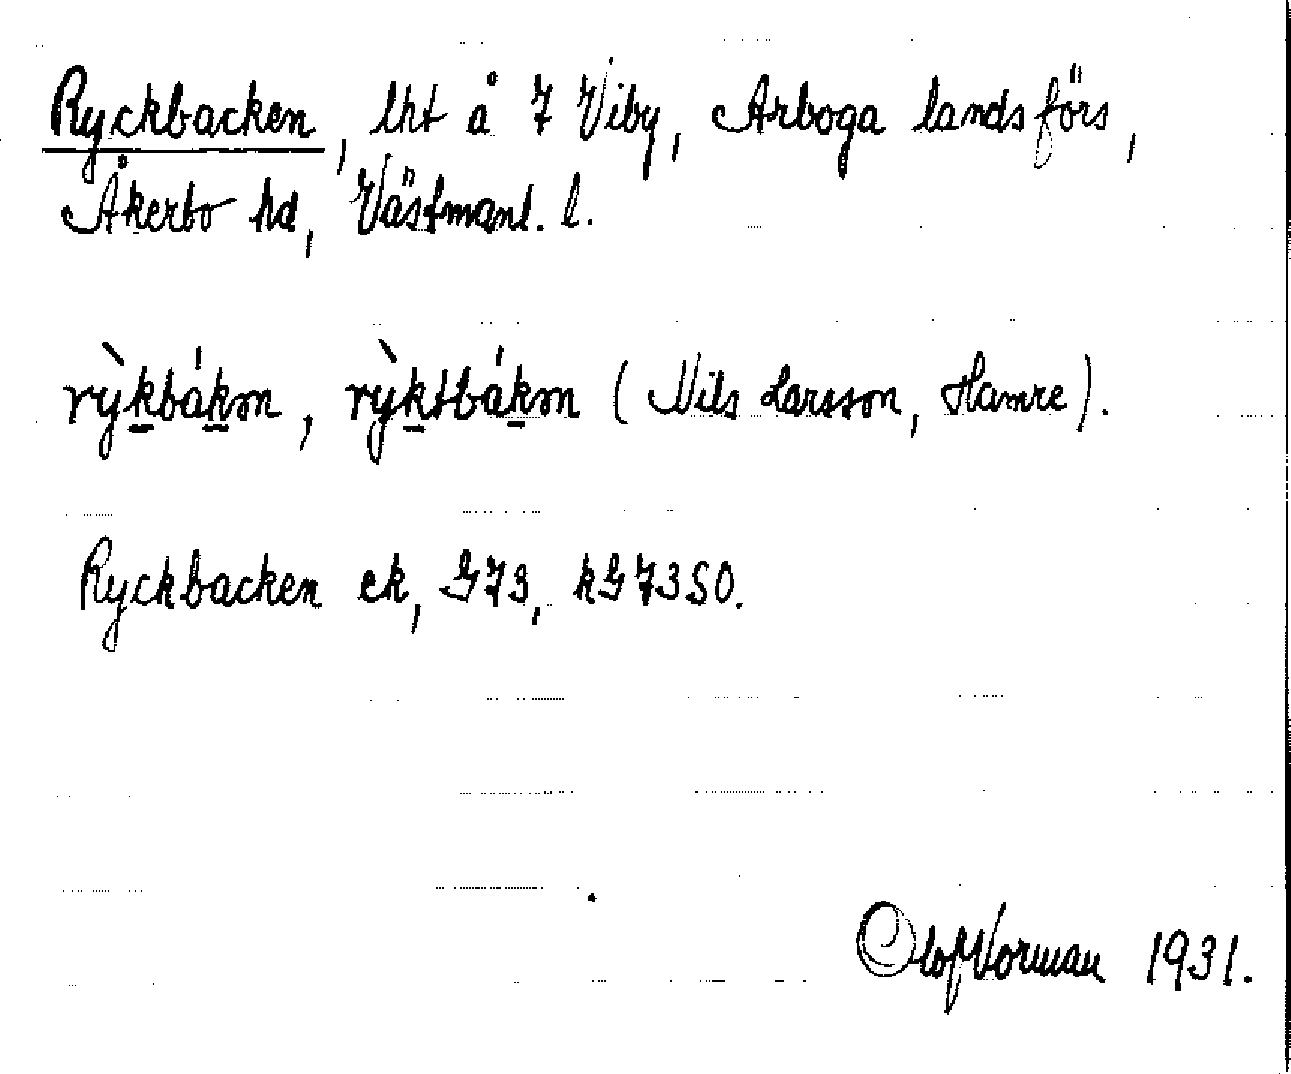 Ryckbacken, lht å 7 Viby, Arboga landsförs,
Åkerbo hd, Västmanl. l.
rỳkbákm, rỳktbákm (Nils Larsson, Hamre).
Ryckbacken ek, G73, kG73SO.
Olof Norman 1931.